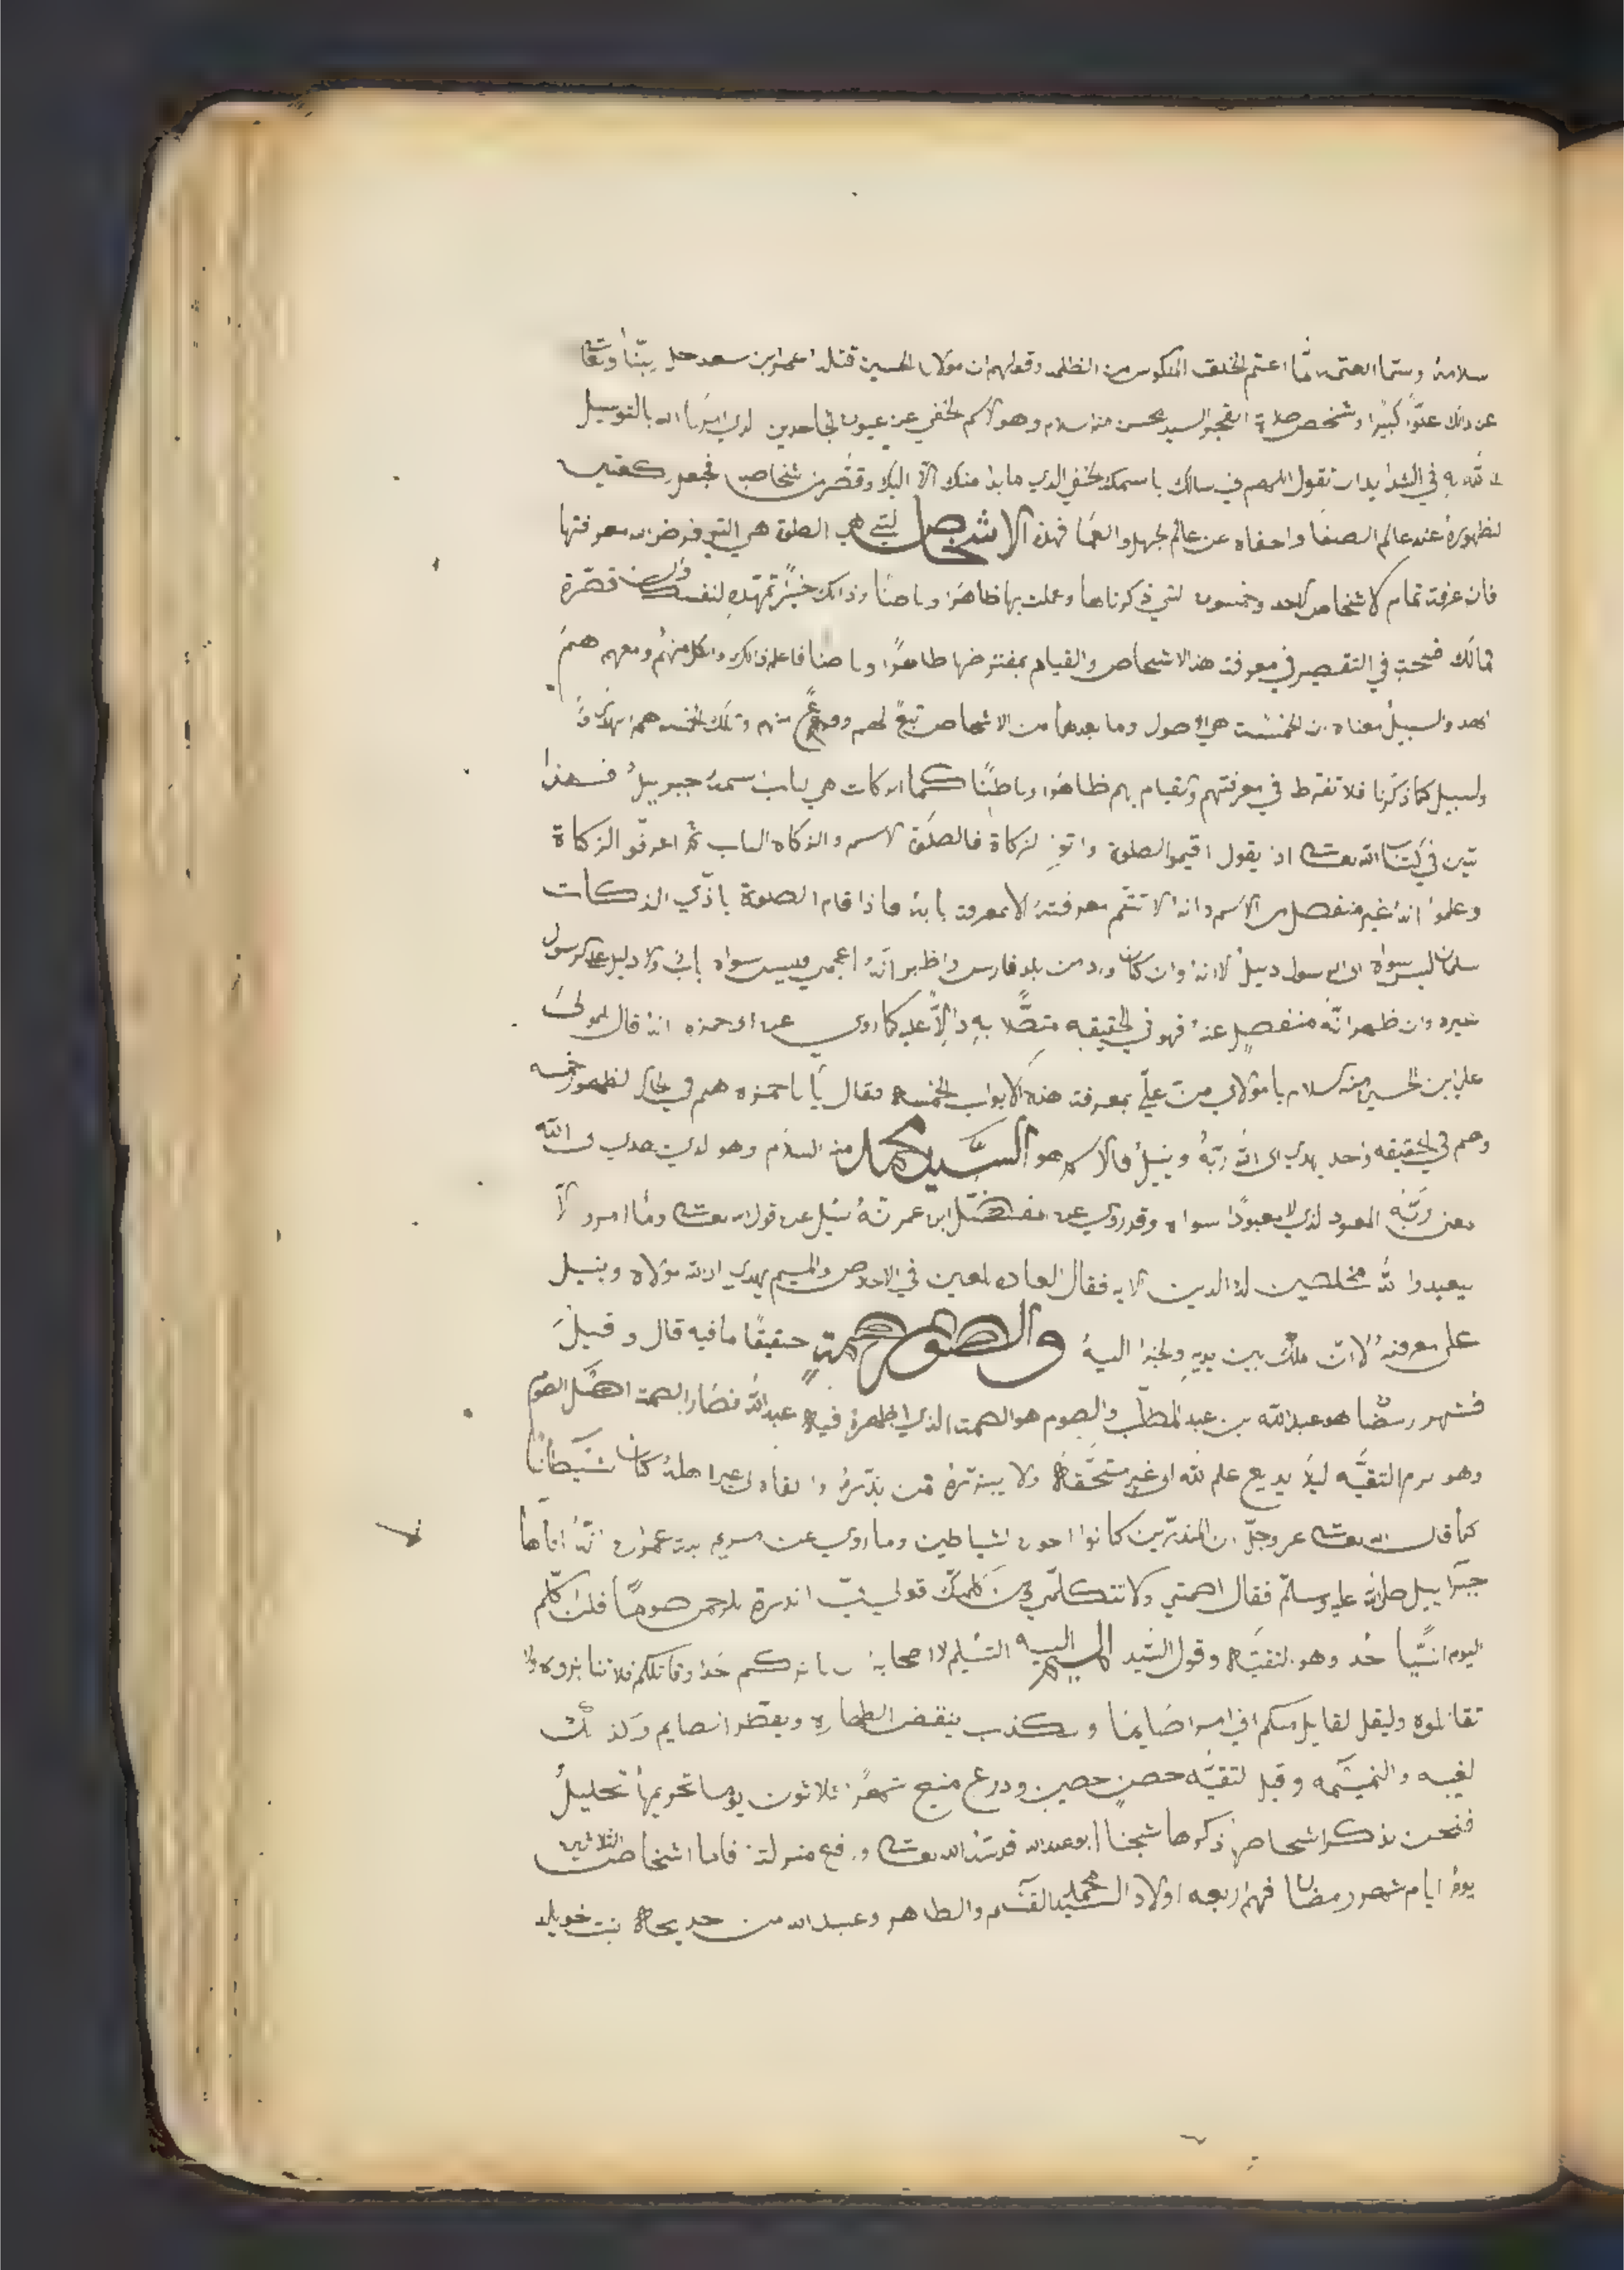 سلامه وسما العتمه لما اعتم الخلق المنكوس من الظلمه وقولهم ان مولانا الحسين قتله اعمر ابن سعد جل ربنا وتعا
عن ذالك علوًّا كبيرًا وشخص صلاة الفجر السيد محسن منه السلام وهو الاسم الخفي عن عيون الجاحدين الذي امرنا الله بالتوسل
لله به في الشدايد ان نقول اللهم اني سالك باسمك الخفي الذي ما بدا منك الا اليك وقصر من شخاصه فجعل ركعتين
لظهوره عند عالم الصفا واخفاه عن عالم الجهل والعما فهذه الاشخاص التي هي الصلوة هي التي فرض الله معرفتها
فان عرفت تمام الاشخاص الاحد وخمسون التي ذكرناها وعملت بها ظاهرًا وباطنًا وذالك خيرًا تمهّده لنفسك وان قصّرة
فمالك فسحت في التقصير في معرفت هذا الاشخاص والقيام بمفترضها ظاهرًا وباطنًا فاعلم ذالك والكل منهم ومعهم همم
لحد والسبيل معناه ان الخمست هي الاصول وما بعدها من الاشخاص تبعً لهم وفروعً منهم وتلك الخمسه هم
ولسبيل كما ذكرنا فلا تفرط في معرفتهم والقيام بهم ظاهرًا وباطنًا كما الزكات هي لباب سمه جبرييل فهذا
تبين في كتاب الله تعالى اذ يقول اقيموا الصلوة واتو الزكاة فالصلوة الاسم والزكاه الباب ثم اعرفو الزكاة
وعلموا انه غير منفصل من الاسم وانه لا تتم معرفته الا بمعرفت بابه فاذا قام الصلوة باذي الزكات
سلمان ليس سواه الى الرسول دليل لانه وان كان ورد من بلد فارس واظهر انه اعجمي فليس سواه باب ولا دليل على الرسول
غيره وان ظهر انه منفصل عنه فهو في الحقيقه متصلًا به دالًّا عليه كما روي عن ابو حمزه انه قال لمولى
علي ابن الحسين منه السلام يا مولاي من علي بمعرفت هذه الابواب الخمسه فقال يا با حمزه هم في الظاهر لظهور خمسه
وهم في الحقيقه واحد يهدي الى الله ربه ويبيل فالاسم هو السيد محمد منه السلام وهو الذي يهدي الى الله
يعني ربه المعبود الذي لا معبودًا سواه وقد روي عن مفضل ابن عمر انه سئل عن قول الله تعالى وما امرو الا
ليعبدوا الله مخلصين له الدين الايه فقال العباده لعين في الاخلاص والميم يهدي الى الله مولاه وينيل
على معرفته لان ملك بين يديه ولجنه اليه والصوم هو الصمت حقيقًا ما فيه قال وقيل
فشهر رمضا هو عبد الله بن عبد المطلب والصوم هو الصمت الذي اظهره فيه عبد الله فصار الصمت اصل الصوم
وهو لزم التقيه ليلا يديع علم الله الى غير مستحقه ولا يبذره فمن بذره والقاه الى غير اهله كان شيطانا
كما قال الله تعالى عز وجل ان المبذرين كانوا اخوان الشياطين وما روي عن مريم بنت عمران انه اتاها
جبراييل صلى الله عليه وسلم فقال اصمتي ولا تتكلمي ومن كلمك قولي اني نذرة للرحمن صومًا فلن اكلم
اليوم انسيًّا خذ وهو التقيه وقول السيد الميم اليه التسليم لاصحابه ان بادركم خدا وقاتلكم فلا تنابزوه ولا
تقاتلوه وليقل لقايل منكم اني امرا صايما وبكذب ينقض الطهاره ويفطر الصايم وكذلك
لغيبه والنميمه وقيل لتقيه حصن حصين ودرع منيع شهرً ثلاثون يومًا تحريمها تحليل
فنحن نذكر اشخاص ذكرها شيخنا ابو عبد الله قدسه الله تعالى ورفع منزلته فاما اشخاص الثلاثين
يومً ايام شهر رمضان فهم اربعه اولاد السيد محمد القاسم والطاهر وعبد الله من خديجه بنت خويلد